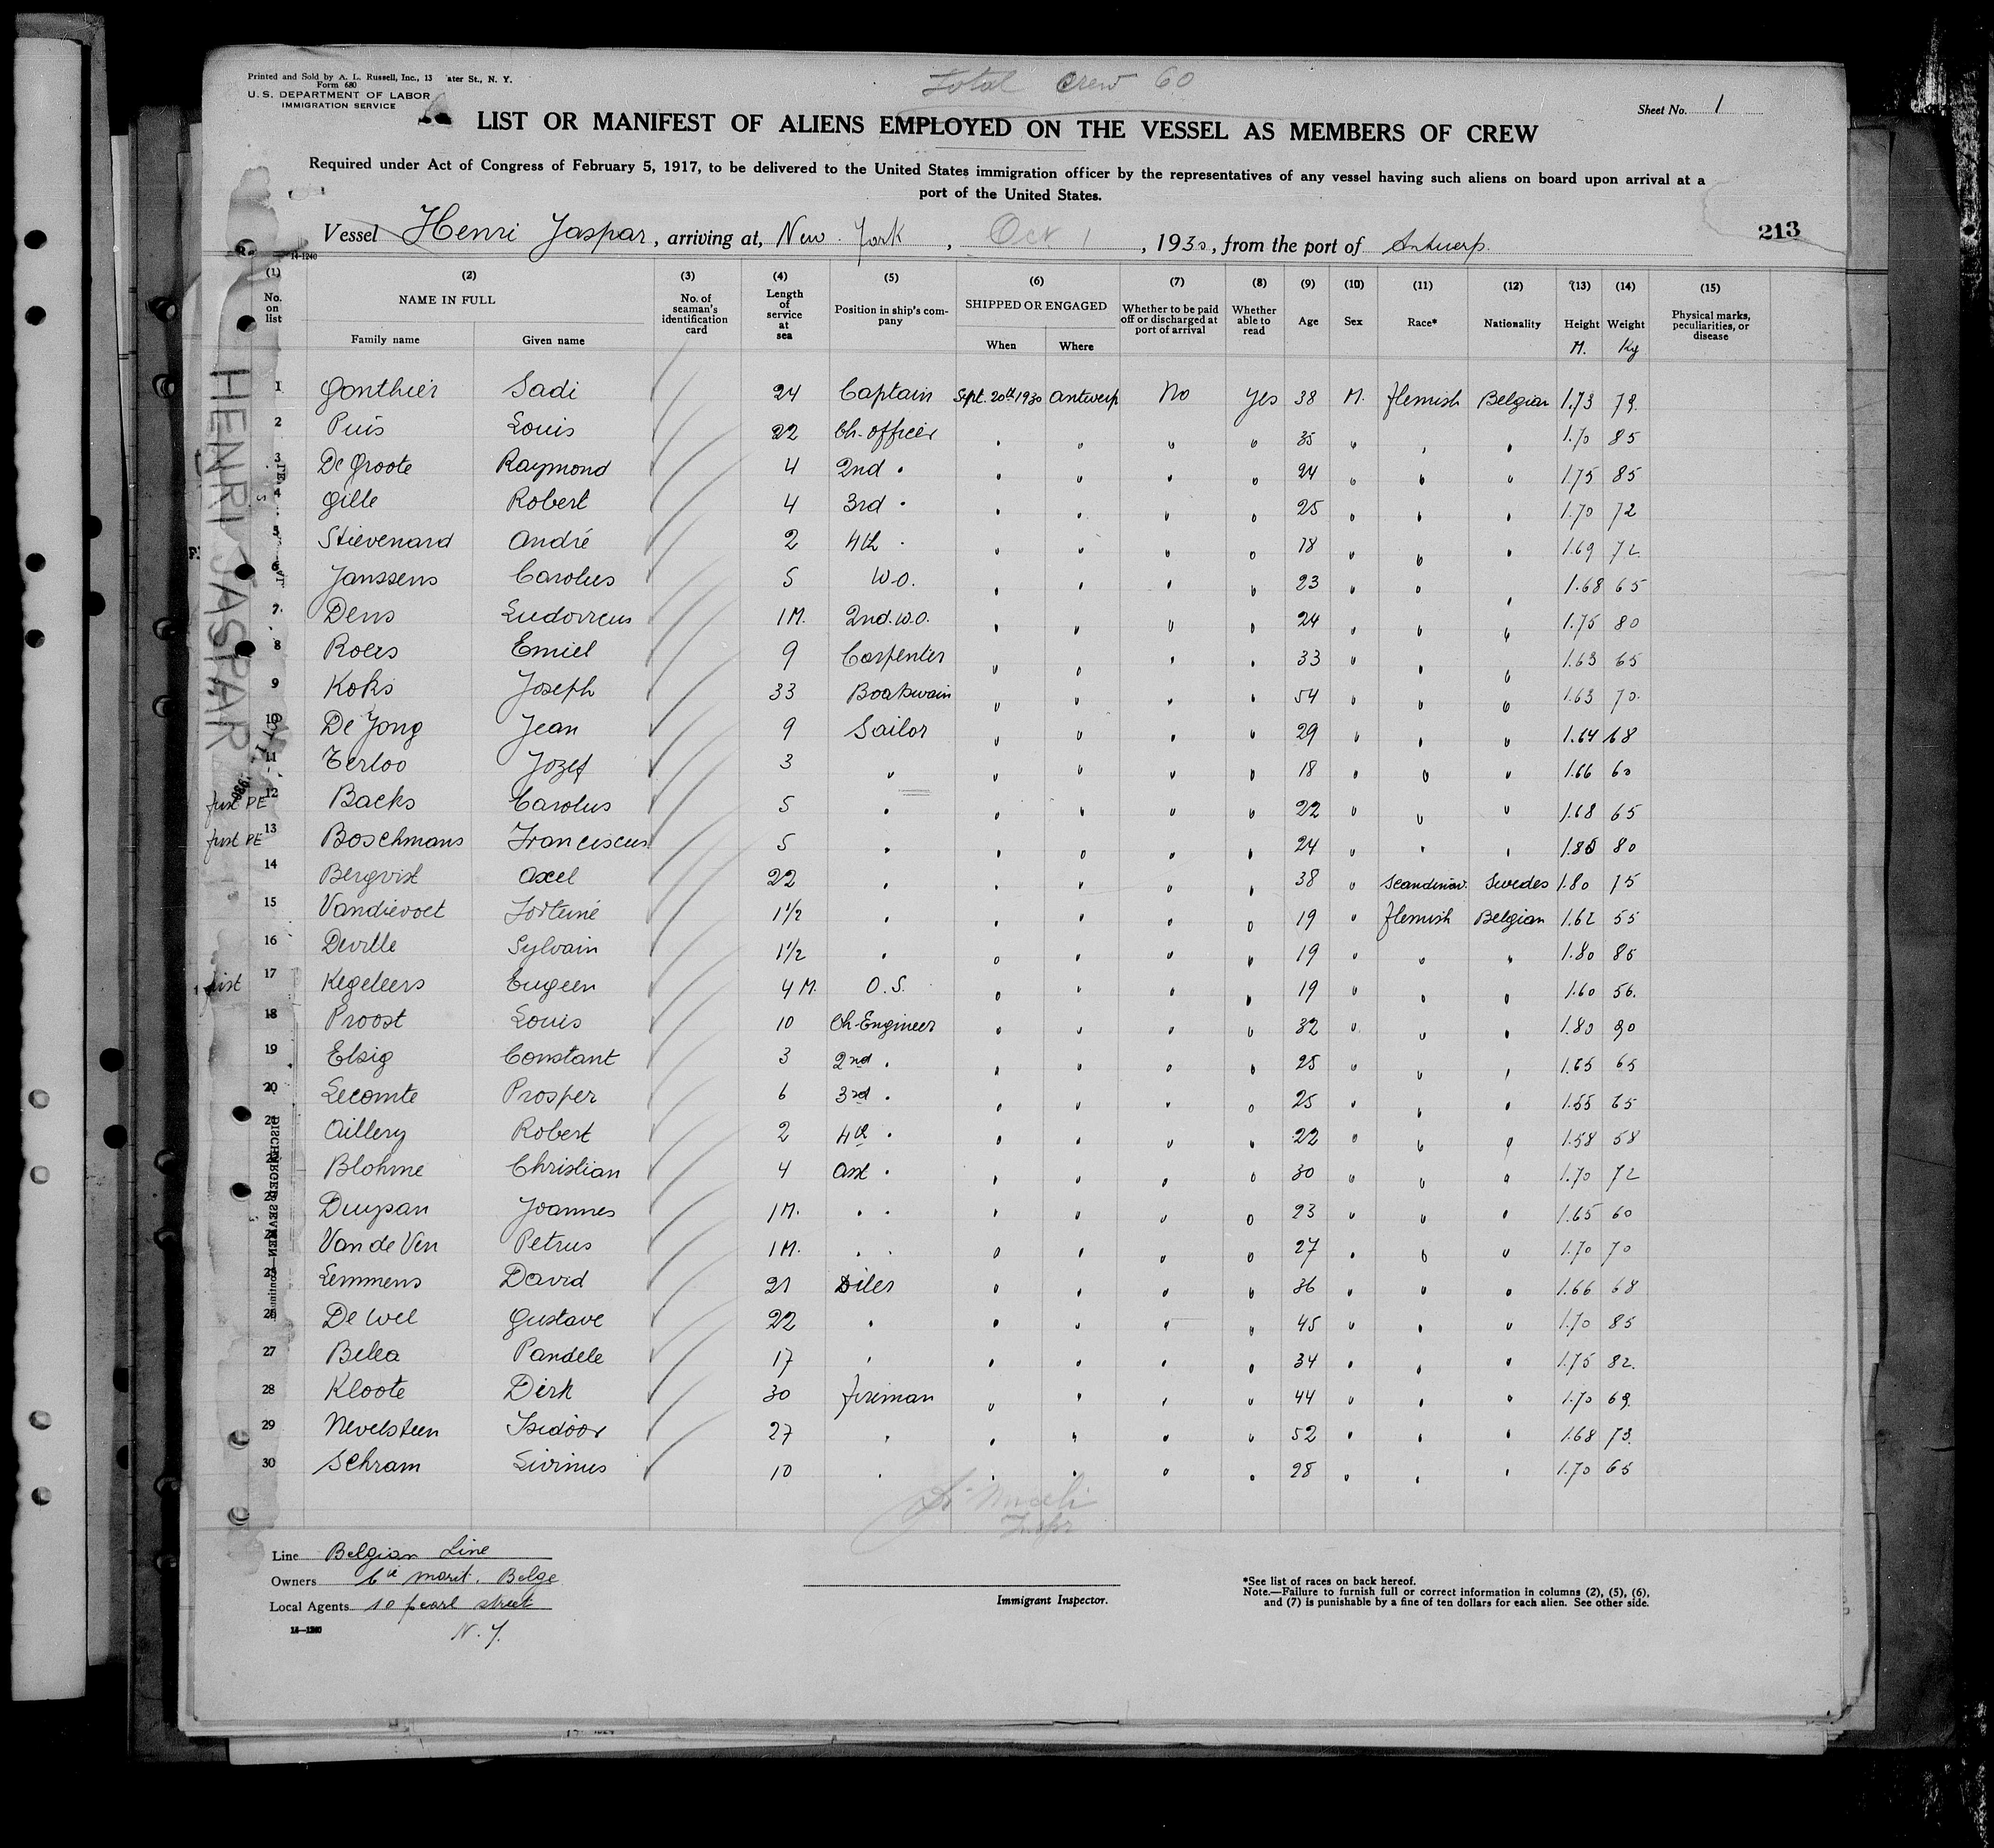 Printed and Sold by A. L. Russell, Inc., 13 ater St., N. Y.
Form 680
U. S. DEPARTMENT OF LABOR
IMMIGRATION SERVICE
Total crew 60
Sheet No. 1
LIST OR MANIFEST OF ALIENS EMPLOYED ON THE VESSEL AS MEMBERS OF CREW
Required under Act of Congress of February 5, 1917, to be delivered to the United States immigration officer by the representatives of any vessel having such aliens on board upon arrival at a
port of the United States.
213
Vessel Henri Jaspar, arriving at, New York, Oct 1, 1930, from the port of Antwerp.
14-1240
(1) (2) (3) (4) (5) (6) (7) (8) (9) (10) (11) (12) (13) (14) (15)
No. on list NAME IN FULL Family name Given name No. of seaman's identification card Length of service at sea Position in ship's company SHIPPED OR ENGAGED When Where Whether to be paid off or discharged at port of arrival Whether able to read Age Sex Race* Nationality Height M. Weight Kg Physical marks, peculiarities, or disease
HENRI JASPAR
1 Gonthier Sadi 24 Captain Sept. 20th 1930 Antwerp No Yes 38 M. Flemish Belgian 1.73 79.
2 Puis Louis 22 Ch. officer " " " " 35 " " " 1.70 85
3 De Groote Raymond 4 2nd " " " " " 24 " " " 1.75 85
4 Gille Robert 4 3rd " " " " " 25 " " " 1.70 72
5 Stievenard André 2 4th " " " " " 18 " " " 1.69 72
6 Janssens Carolus 5 W.O. " " " " 23 " " " 1.68 65
7 Dens Ludovicus 1 M. 2nd. W.O. " " " " 24 " " " 1.75 80
8 Roers Emiel 9 Carpenter " " " " 33 " " " 1.63 65
9 Koks Joseph 33 Boatswain " " " " 54 " " " 1.63 70.
10 De Jong Jean 9 Sailor " " " " 29 " " " 1.64 68
11 Terloo Jozef 3 " " " " " 18 " " " 1.66 60
first PE 12 Backs Carolus 5 " " " " " 22 " " " 1.68 65
first PE 13 Boschmans Franciscus 5 " " " " " 24 " " " 1.85 80
14 Bergvist Axel 22 " " " " " 38 " Scandinav. Swedes 1.80 75
15 Vandievoet Fortuné 1 1/2 " " " " " 19 " Flemish Belgian 1.62 55
16 Deville Sylvain 1 1/2 " " " " " 19 " " " 1.80 85
first 17 Kegeleers Eugeen 4 M. O. S. " " " " 19 " " " 1.60 56.
18 Proost Louis 10 Ch. Engineer " " " " 32 " " " 1.80 90
19 Elsig Constant 3 2nd " " " " " 25 " " " 1.65 65
20 Lecomte Prosper 6 3rd " " " " " 25 " " " 1.55 65
21 Aillery Robert 2 4th " " " " " 22 " " " 1.58 58
Blohme Christian 4 Asst " " " " " 30 " " " 1.70 72
Duysan Joannes 1 M. " " " " " " 23 " " " 1.65 60
24 Van de Ven Petrus 1 M. " " " " " " 27 " " " 1.70 70
25 Lemmens David 21 Oiler " " " " 36 " " " 1.66 68
26 De Wel Gustave 22 " " " " " 45 " " " 1.70 85
27 Belea Pandele 17 " " " " " 34 " " " 1.75 82.
28 Kloote Dirk 30 fireman " " " " 44 " " " 1.70 69.
29 Nevelsteen Isidoor 27 " " " " " 52 " " " 1.68 73.
30 Schram Livinus 10 " " " " " 28 " " " 1.70 65
Line Belgian Line
Owners Cie marit. Belge
Local Agents 10 pearl street
N. Y.
14-1240
Immigrant Inspector.
*See list of races on back hereof.
Note.—Failure to furnish full or correct information in columns (2), (5), (6),
and (7) is punishable by a fine of ten dollars for each alien. See other side.